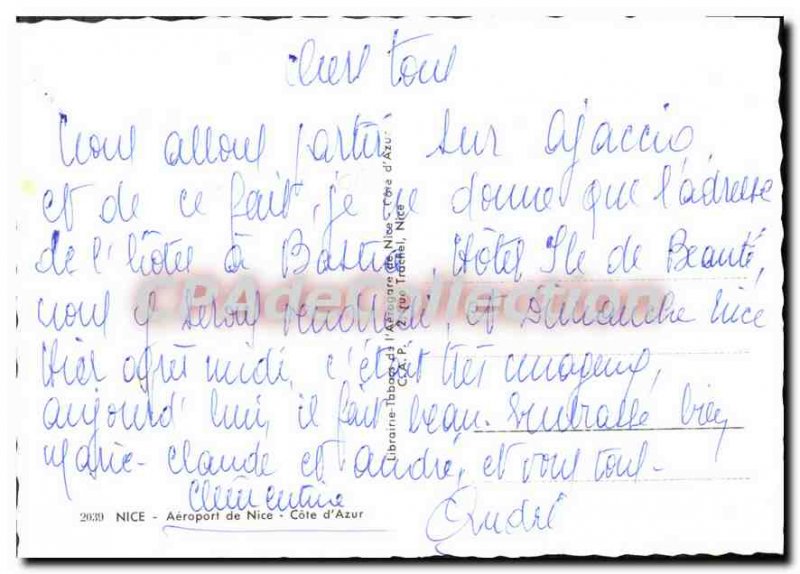 Chers tous
Nous allons partir sur Ajaccio
et de ce fait, je ne donne que l'adresse
de l'hôtel à Bastia, Hôtel Ile de Beauté,
nous y serons vendredi, et Dimanche Nice
Hier après midi, c'était très nuageux,
aujourd'hui, il fait beau. Embrasse bien
Marie-Claude et André, et vous tous-
Clémentine
André
2039 NICE - Aéroport de Nice - Côte d'Azur
Librairie-Tabacs de l'Aérogare de Nice - Côte d'Azur
C.A.P. - 2, rue Trachel, Nice
CPAdeCollection